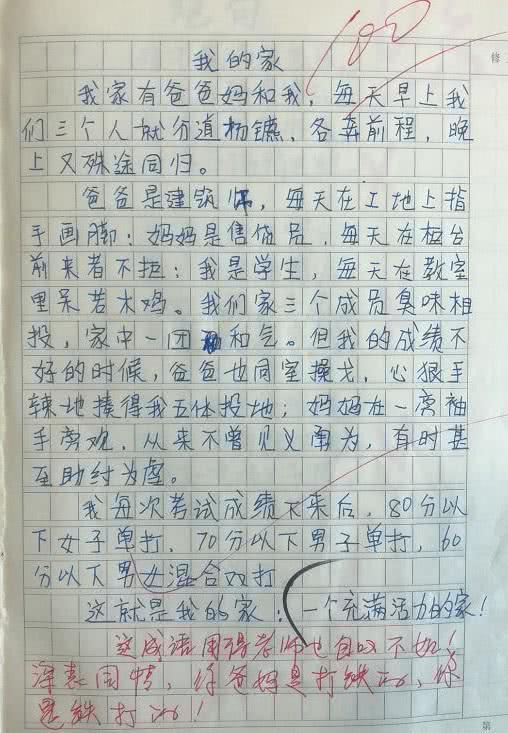 100
修
我的家
我家有爸爸妈和我，每天早上我
们三个人就分道扬镳，各奔前程，晚
上又殊途同归。
爸爸是建筑师，每天在工地上指
手画脚；妈妈是售货员，每天在柜台
前来者不拒；我是学生，每天在教室
里呆若木鸡。我们家三个成员臭味相
投，家中一团和气。但我的成绩不
好的时候，爸爸也同室操戈，心狠手
辣地揍得我五体投地；妈妈在一旁袖
手旁观，从来不曾见义勇为，有时甚
至助纣为虐。
我每次考试成绩下来后，80分以
下女子单打，70分以下男子单打，60
分以下男女混合双打
这就是我的家：一个充满活力的家！
这成语用得老师也自叹不如！
深表同情，你爸妈是打铁的，你
是铁打的！
第